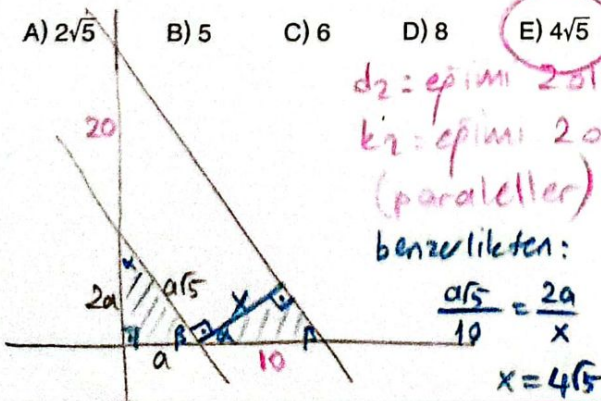 A) 2√5 B) 5 C) 6 D) 8 E) 4√5
d₂ = eğimi 2 ol
k₂ = eğimi 2 o
(paraleller)
benzerlikten:
a√5/10 = 2a/x
x = 4√5
20
2a
α
a√5
x
a
β
α
10
β